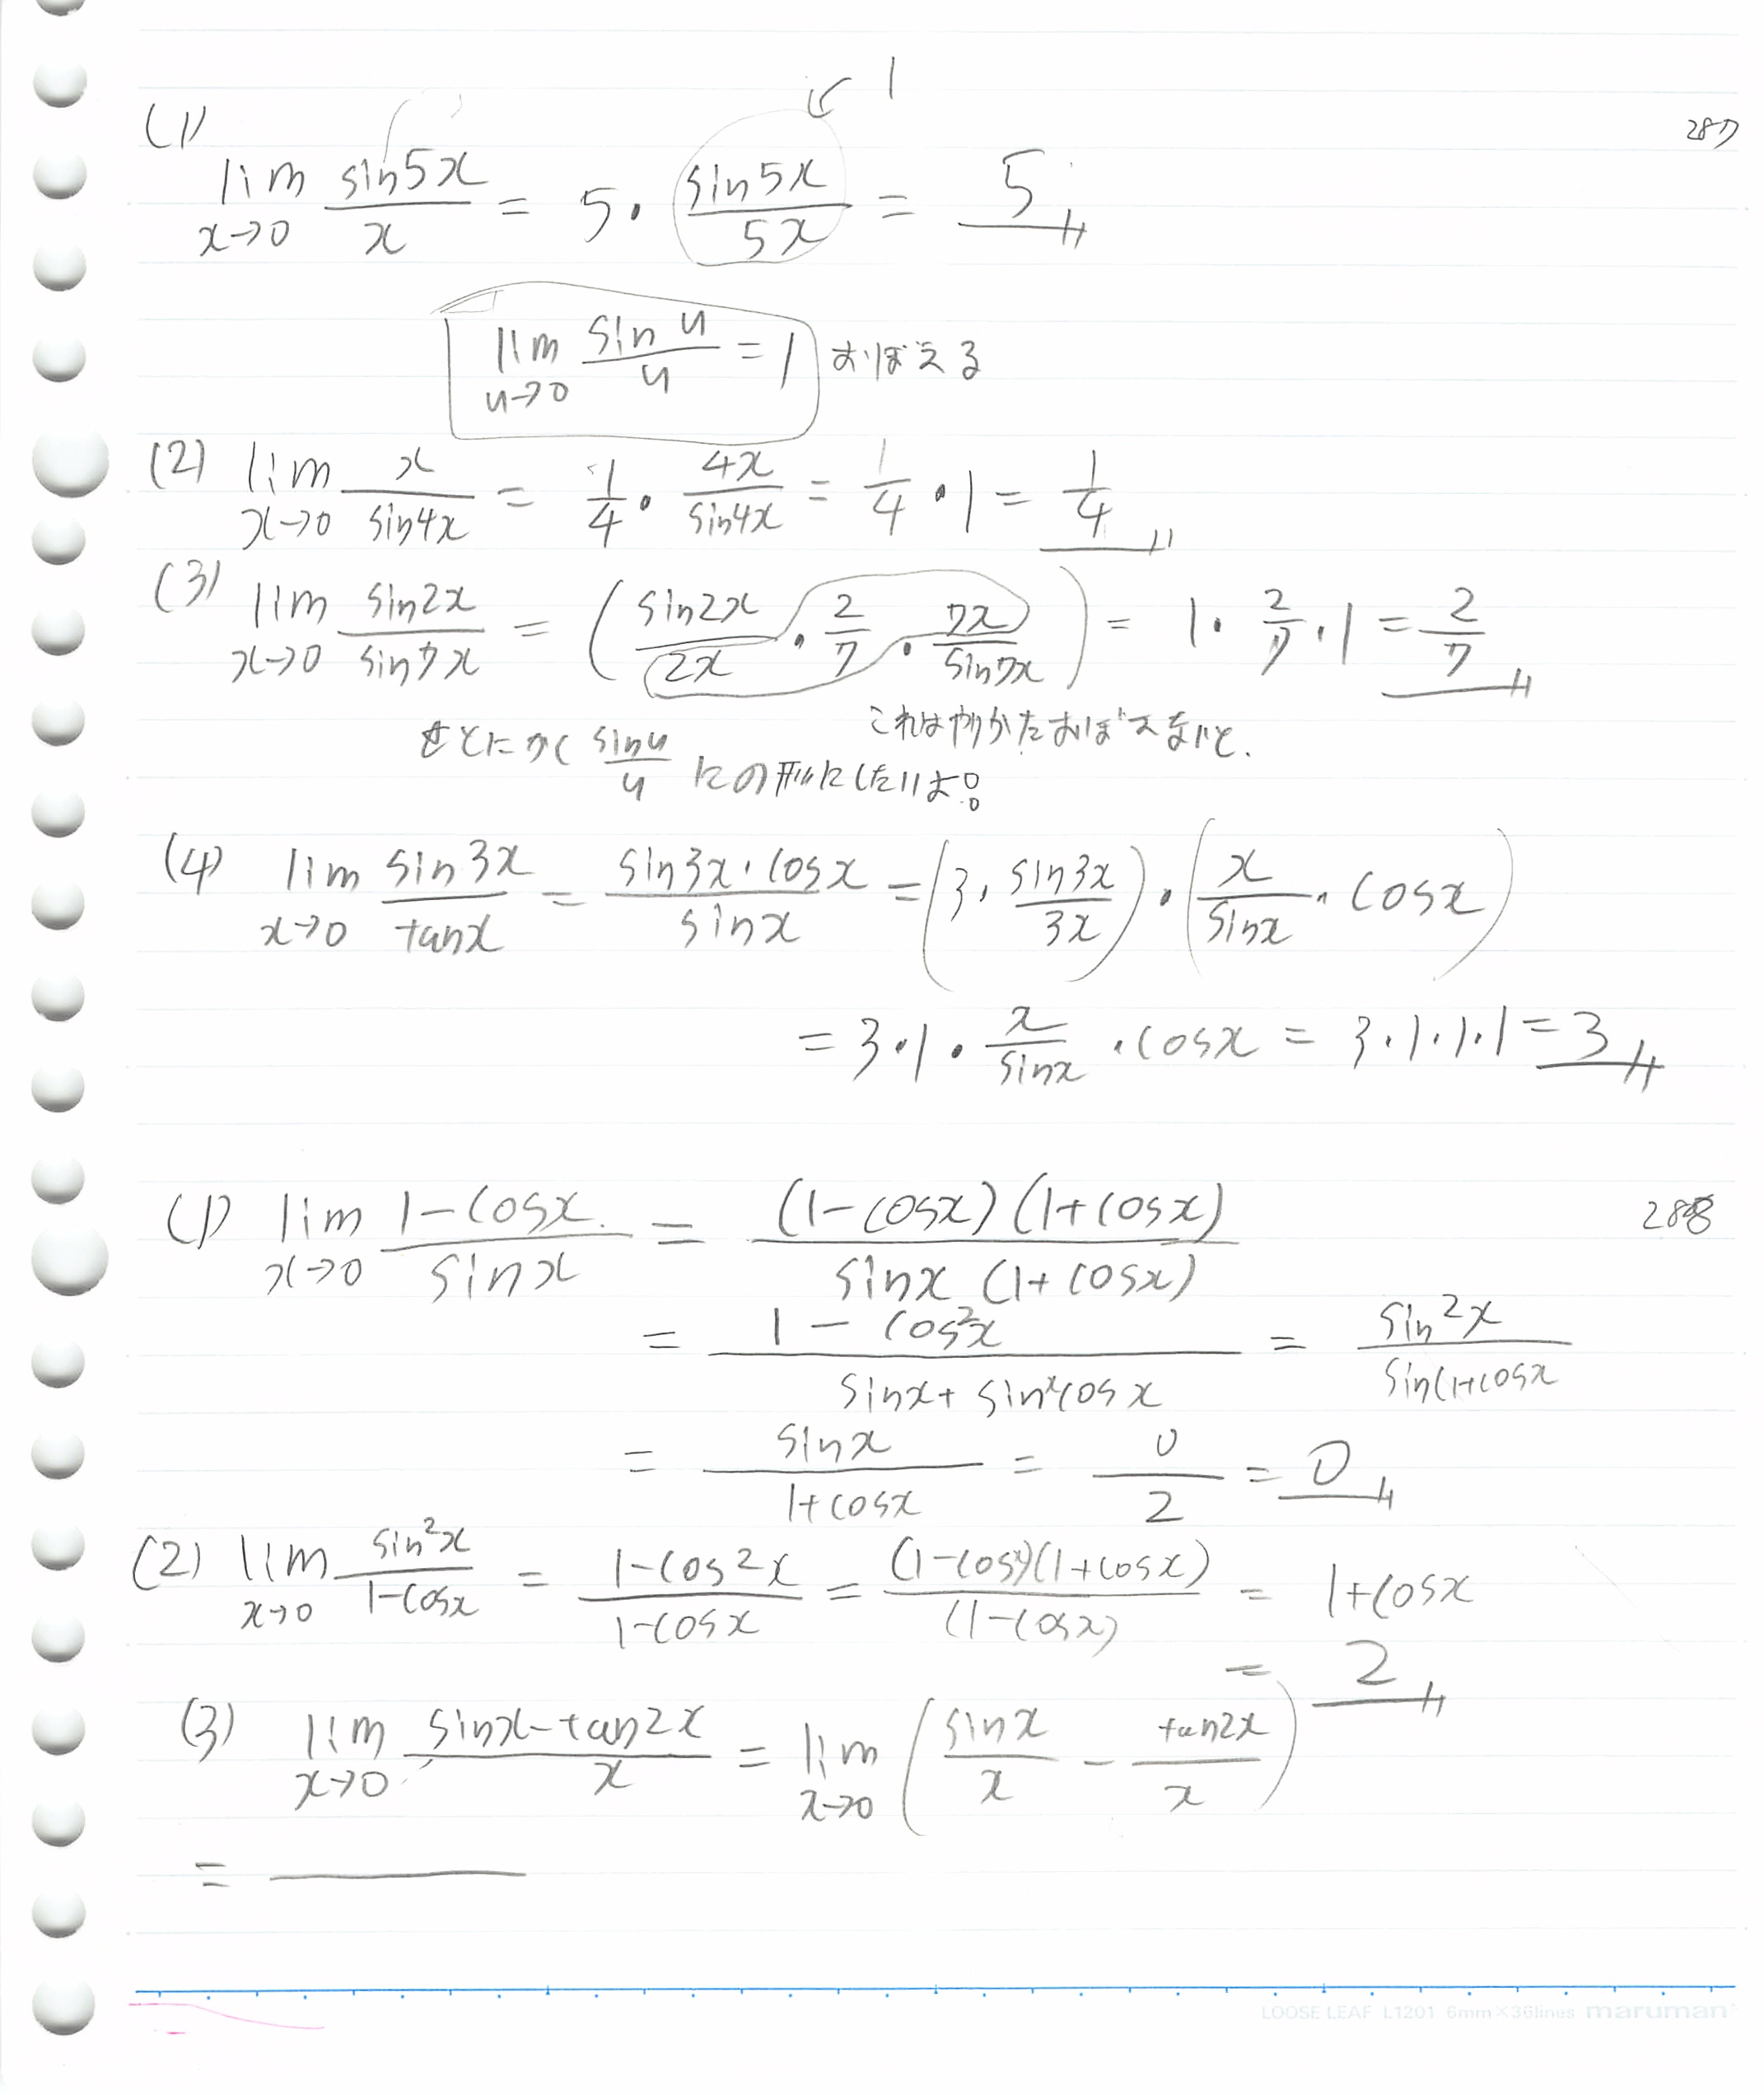 287
(1)
lim x→0 sin5x/x = 5・sin5x/5x = 5
↙ 1
lim u→0 sin u/u = 1 おぼえる
(2) lim x→0 x/sin4x = 1/4・4x/sin4x = 1/4・1 = 1/4
(3) lim x→0 sin2x/sin7x = (sin2x/2x・2/7・7x/sin7x) = 1・2/7・1 = 2/7
これはやりかたおぼえないと.
とにかく sin u/u の形にしたいよ。
(4) lim x→0 sin3x/tanx = sin3x・cosx/sinx = (3・sin3x/3x)・(x/sinx・cosx)
= 3・1・x/sinx・cosx = 3・1・1・1 = 3
288
(1) lim x→0 1-cosx/sinx = (1-cosx)(1+cosx)/sinx(1+cosx)
= 1-cos²x/sinx+sinxcosx = sin²x/sin(1+cosx
= sinx/1+cosx = 0/2 = 0
(2) lim x→0 sin²x/1-cosx = 1-cos²x/1-cosx = (1-cosx)(1+cosx)/(1-cosx) = 1+cosx
= 2
(3) lim x→0 sinx-tan2x/x = lim x→0 (sinx/x - tan2x/x)
=
LOOSE LEAF L1201 6mm×36lines maruman